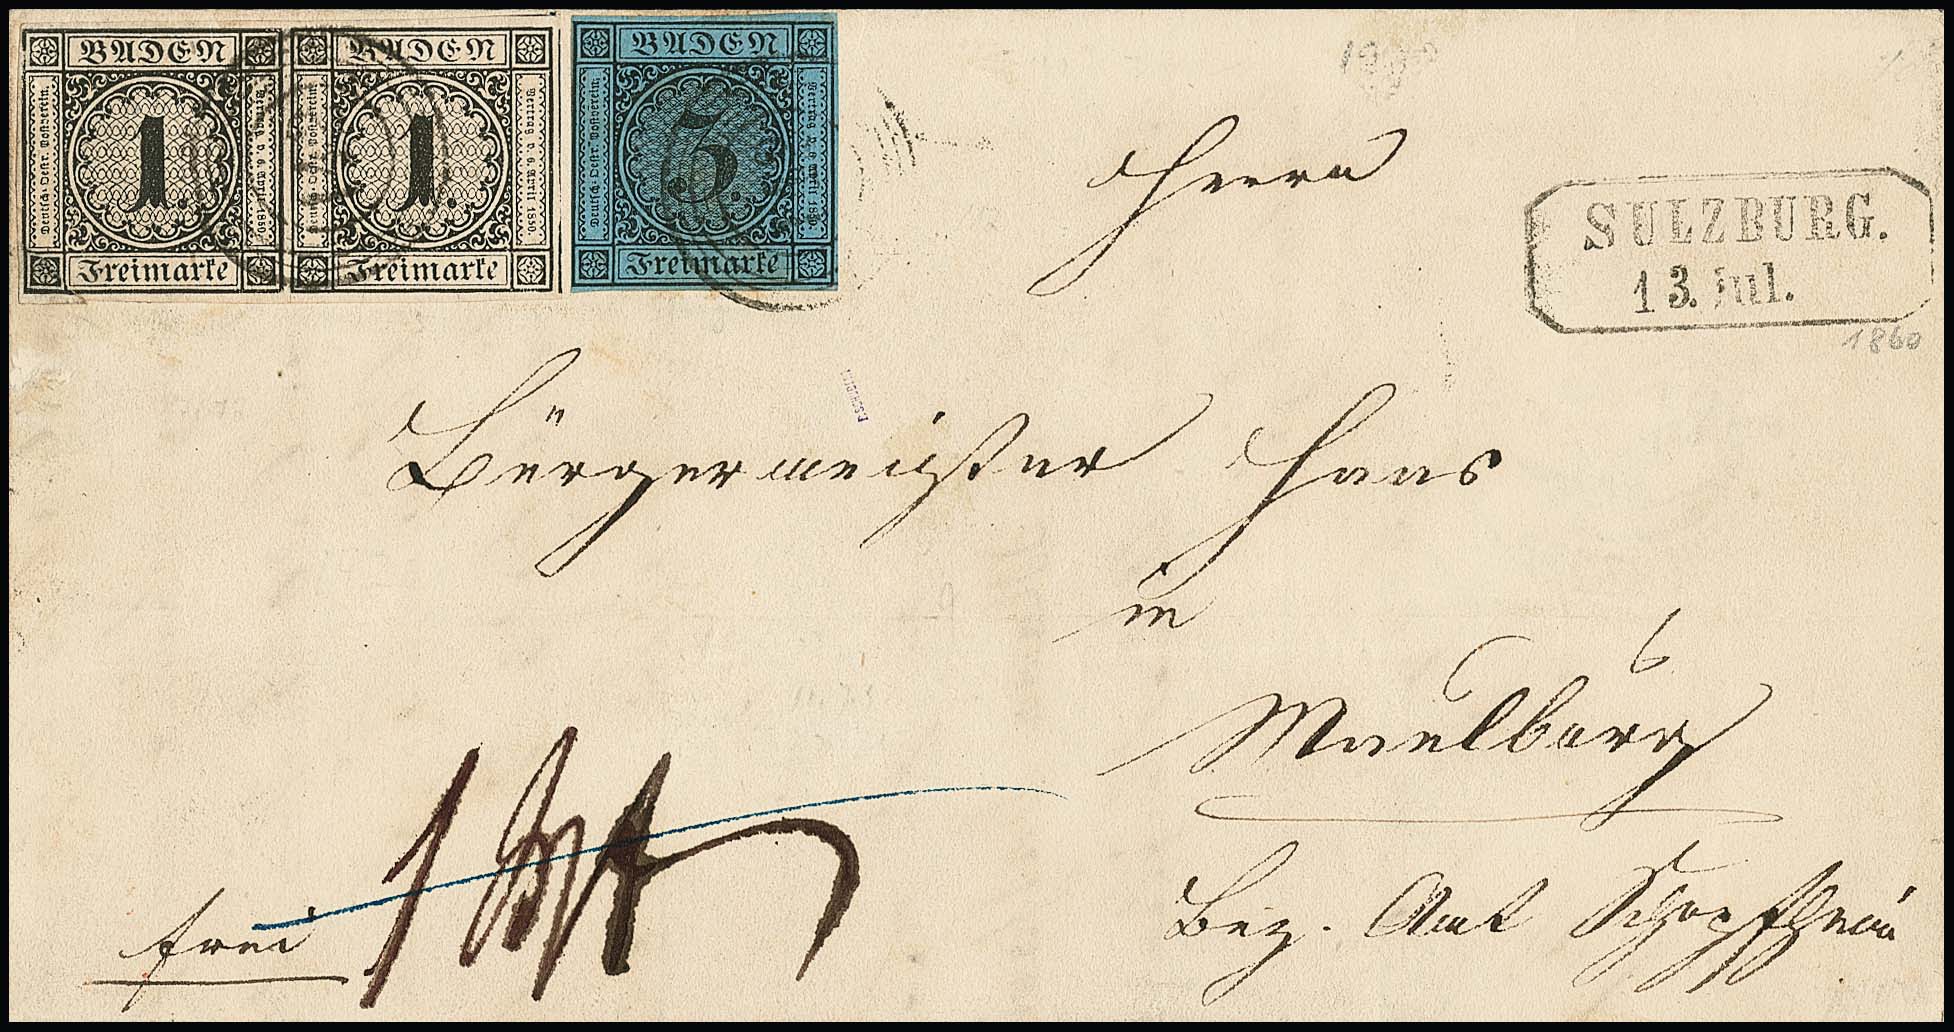 BADEN
Deutsch-Oestr. Postverein.
1.
Vertrag v. 6. April 1850.
Freimarke
BADEN
Deutsch-Oestr. Postverein.
1.
Vertrag v. 6. April 1850.
Freimarke
BADEN
Deutsch-Oestr. Postverein.
3.
Vertrag v. 6. April 1850.
Freimarke
SULZBURG.
13. Jul.
1860
Herrn
Bürgermeister Haas
in
Maulburg
Bez. Amt Schopfheim
frei